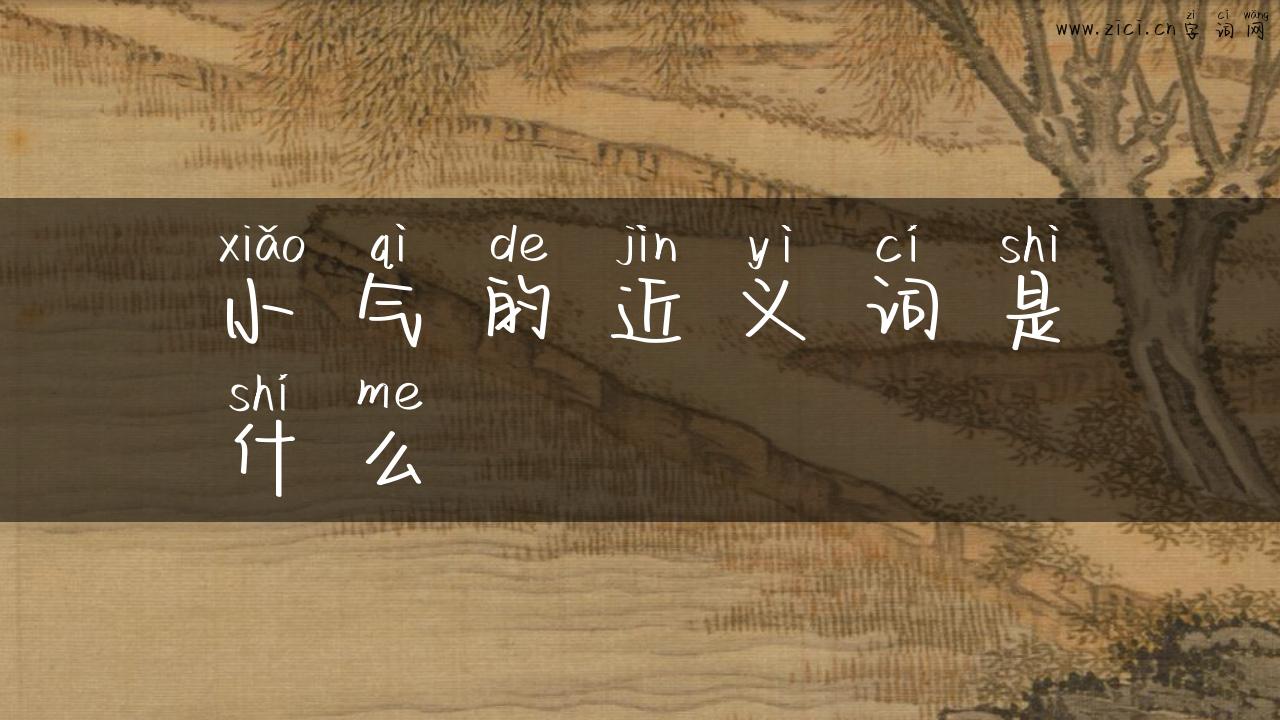 zì cí wǎng
www.zici.cn字词网
xiǎo qì de jìn yì cí shì
小气的近义词是
shí me
什么